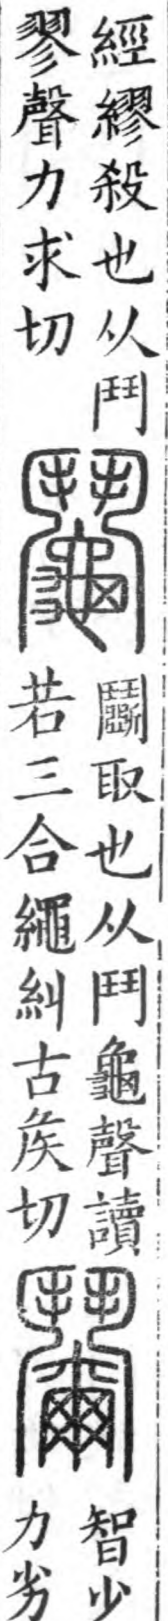 經繆殺也从鬥
翏聲力求切
鬮
鬭取也从鬥龜聲讀
若三合繩糾古矦切
𩰞
智少
力劣